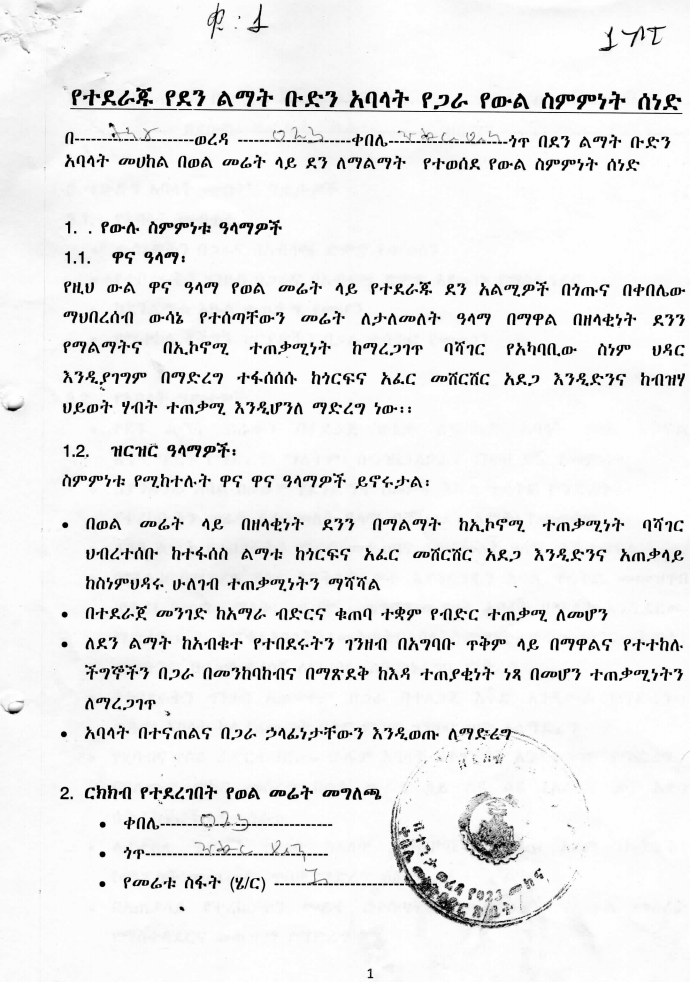 ቁ : 1
የተደራጁ የደን ልማት ቡድን አባላት የጋራ የውል ስምምነት ሰነድ
በ---------------------ወረዳ --------------------ቀበሌ---------------------ጎጥ በደን ልማት ቡድን
አባላት መሀከል በወል መሬት ላይ ደን ለማልማት የተወሰደ የውል ስምምነት ሰነድ
1. . የውሉ ስምምነቱ ዓላማዎች
1.1. ዋና ዓላማ፡
የዚህ ውል ዋና ዓላማ የወል መሬት ላይ የተደራጁ ደን አልሚዎች በጎጡና በቀበሌው
ማህበረሰብ ውሳኔ የተሰጣቸውን መሬት ለታለመለት ዓላማ በማዋል በዘላቂነት ደንን
የማልማትና በኢኮኖሚ ተጠቃሚነት ከማረጋገጥ ባሻገር የአካባቢው ስነም ህዳር
እንዲያገግም በማድረግ ተፋሰሰሱ ከጎርፍና አፈር መሸርሸር አደጋ እንዲድንና ከብዝሃ
ህይወት ሃብት ተጠቃሚ እንዲሆንለ ማድረግ ነው፡፡
1.2. ዝርዝር ዓላማዎች፡
ስምምነቱ የሚከተሉት ዋና ዋና ዓላማዎች ይኖሩታል፡
• በወል መሬት ላይ በዘላቂነት ደንን በማልማት ከኢኮኖሚ ተጠቃሚነት ባሻገር
ህብረተሰቡ ከተፋሰስ ልማቱ ከጎርፍና አፈር መሸርሸር አደጋ እንዲድንና አጠቃላይ
ከስነምህዳሩ ሁለገብ ተጠቃሚነትን ማሻሻል
• በተደራጀ መንገድ ከአማራ ብድርና ቁጠባ ተቋም የብድር ተጠቃሚ ለመሆን
• ለደን ልማት ከአብቁተ የተበደሩትን ገንዘብ በአግባቡ ጥቅም ላይ በማዋልና የተተከሉ
ችግኞችን በጋራ በመንከባከብና በማጽደቅ ከእዳ ተጠያቂነት ነጻ በመሆን ተጠቃሚነትን
ለማረጋገጥ
• አባላት በተናጠልና በጋራ ኃላፊነታቸውን እንዲወጡ ለማድረግ
2. ርክክብ የተደረገበት የወል መሬት መግለጫ
• ቀበሌ------------------------------
• ጎጥ--------------------------------
• የመሬቱ ስፋት (ሄ/ር) ------------------------
1